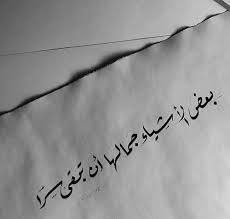 بعض الأشياء جمالها أن تبقى سرا